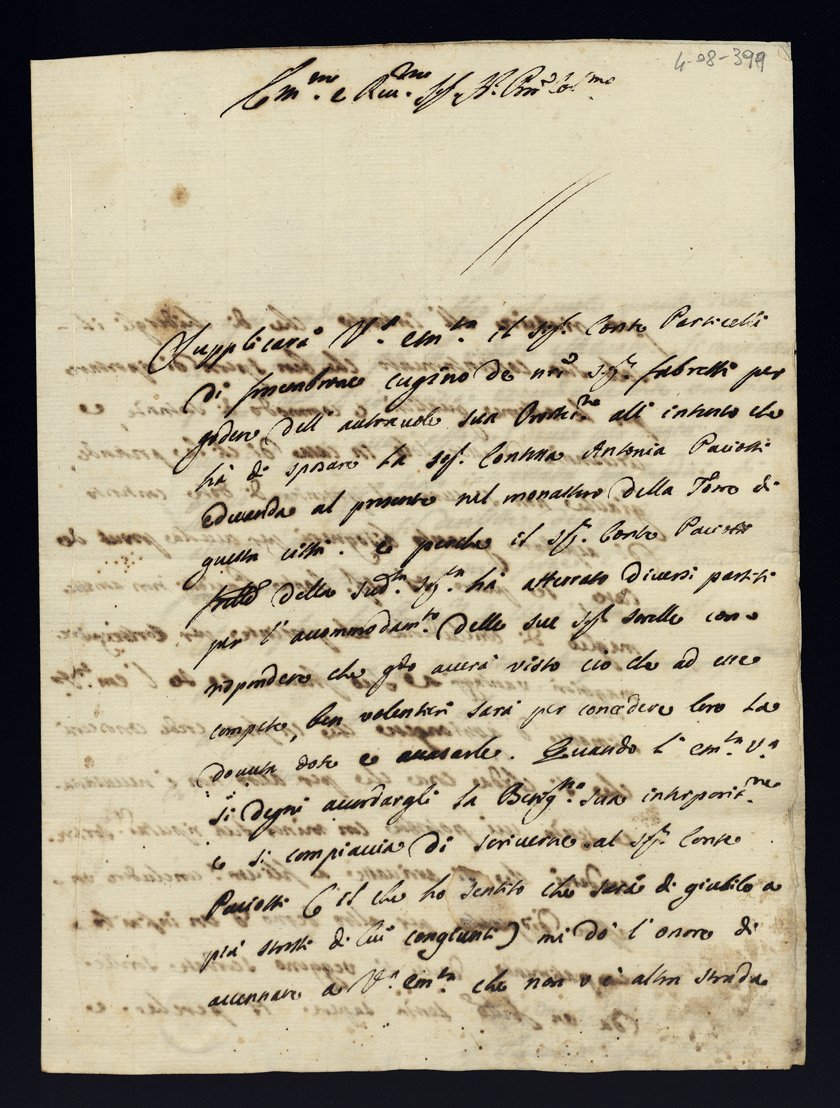 4-08-399
Em.mo e Rev.mo Sig.r P.ron Col.mo
Supplicarà V.a Em.za il Sig.r Conte Particelli
di cugino de nro Sig.r Fabretti per
godere dell'autorevole sua Protti.ne all'intento che
hà di sposare la Sig.ra Contessa Antonia Paciotti
educanda al presente nel monastero della Torre di
questa città. e perche il Sig.r Conte Paciotti
frello della sud.ta Sig.ra hà atterrato diversi partiti
per l'accommodam.to delle sue Sig.re sorelle con
rispondere che qdo averà visto ciò che ad esse
compete, ben volentieri sarà per concedere loro la
dovuta dote e accasarle. Quando l'Em.za V.a
si degni accordargli la Benig.ma sua interposit.ne
e si compiaccia di scriverne al Sig.r Conte
Paciotti (il che ho sentito che sarà di giubilo a
più stretti di lui congiunti) mi dò l'onore di
accennare a V.a Em.za che non v'è altra strada